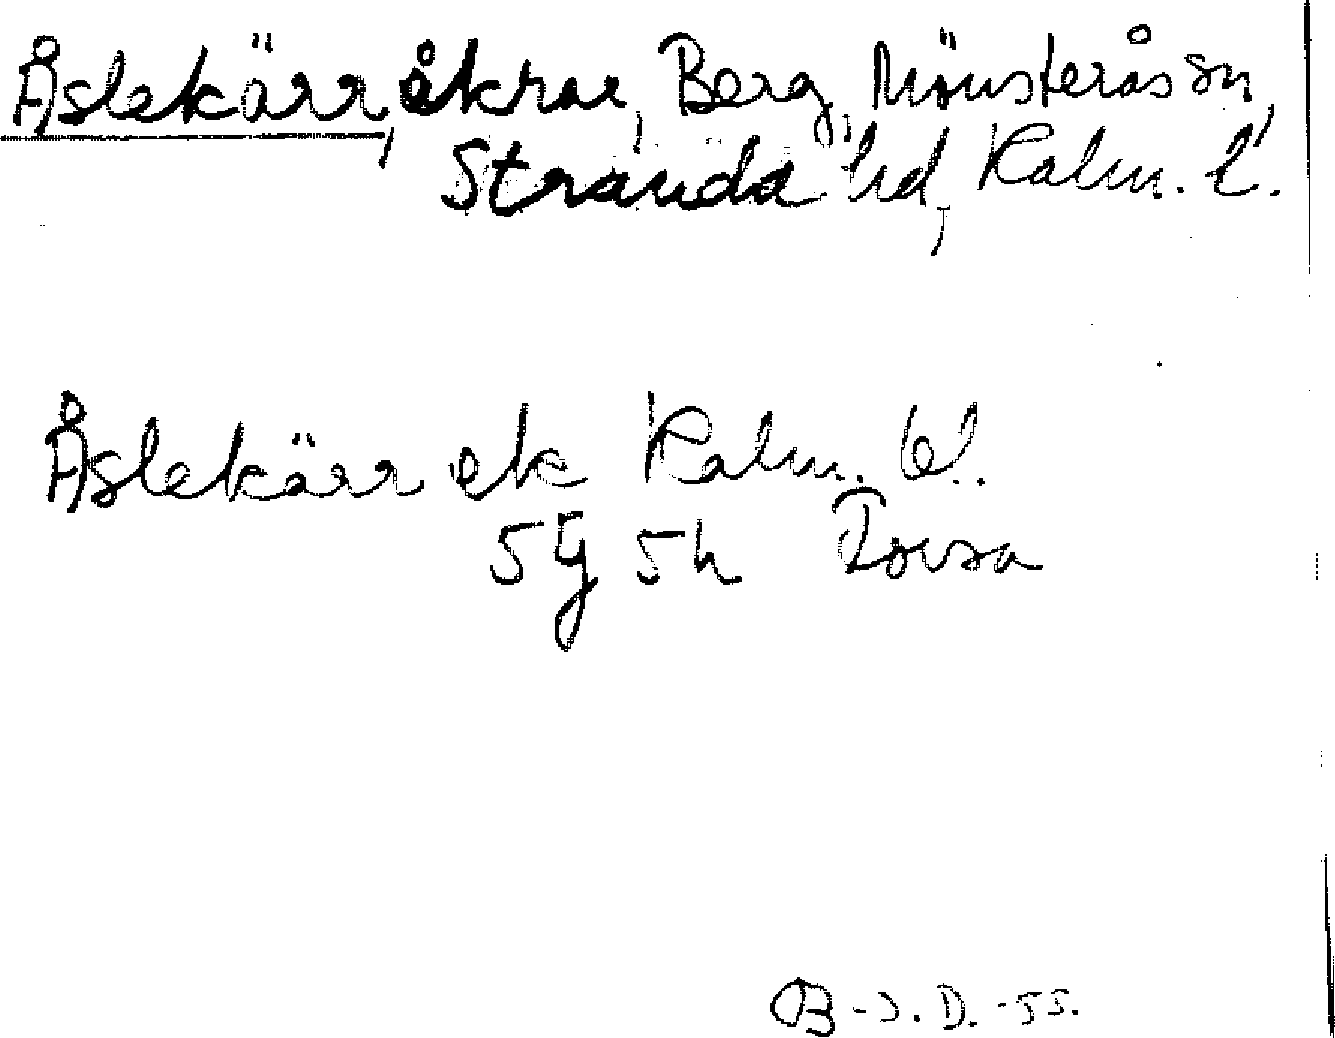 Åslekärr, åkrar, Berg, Mönsterås sn,
Stranda hd, Kalm. l.
Åslekärr ek Kalm. bl.
5g 5h Rovsa
B-J.D.-55.